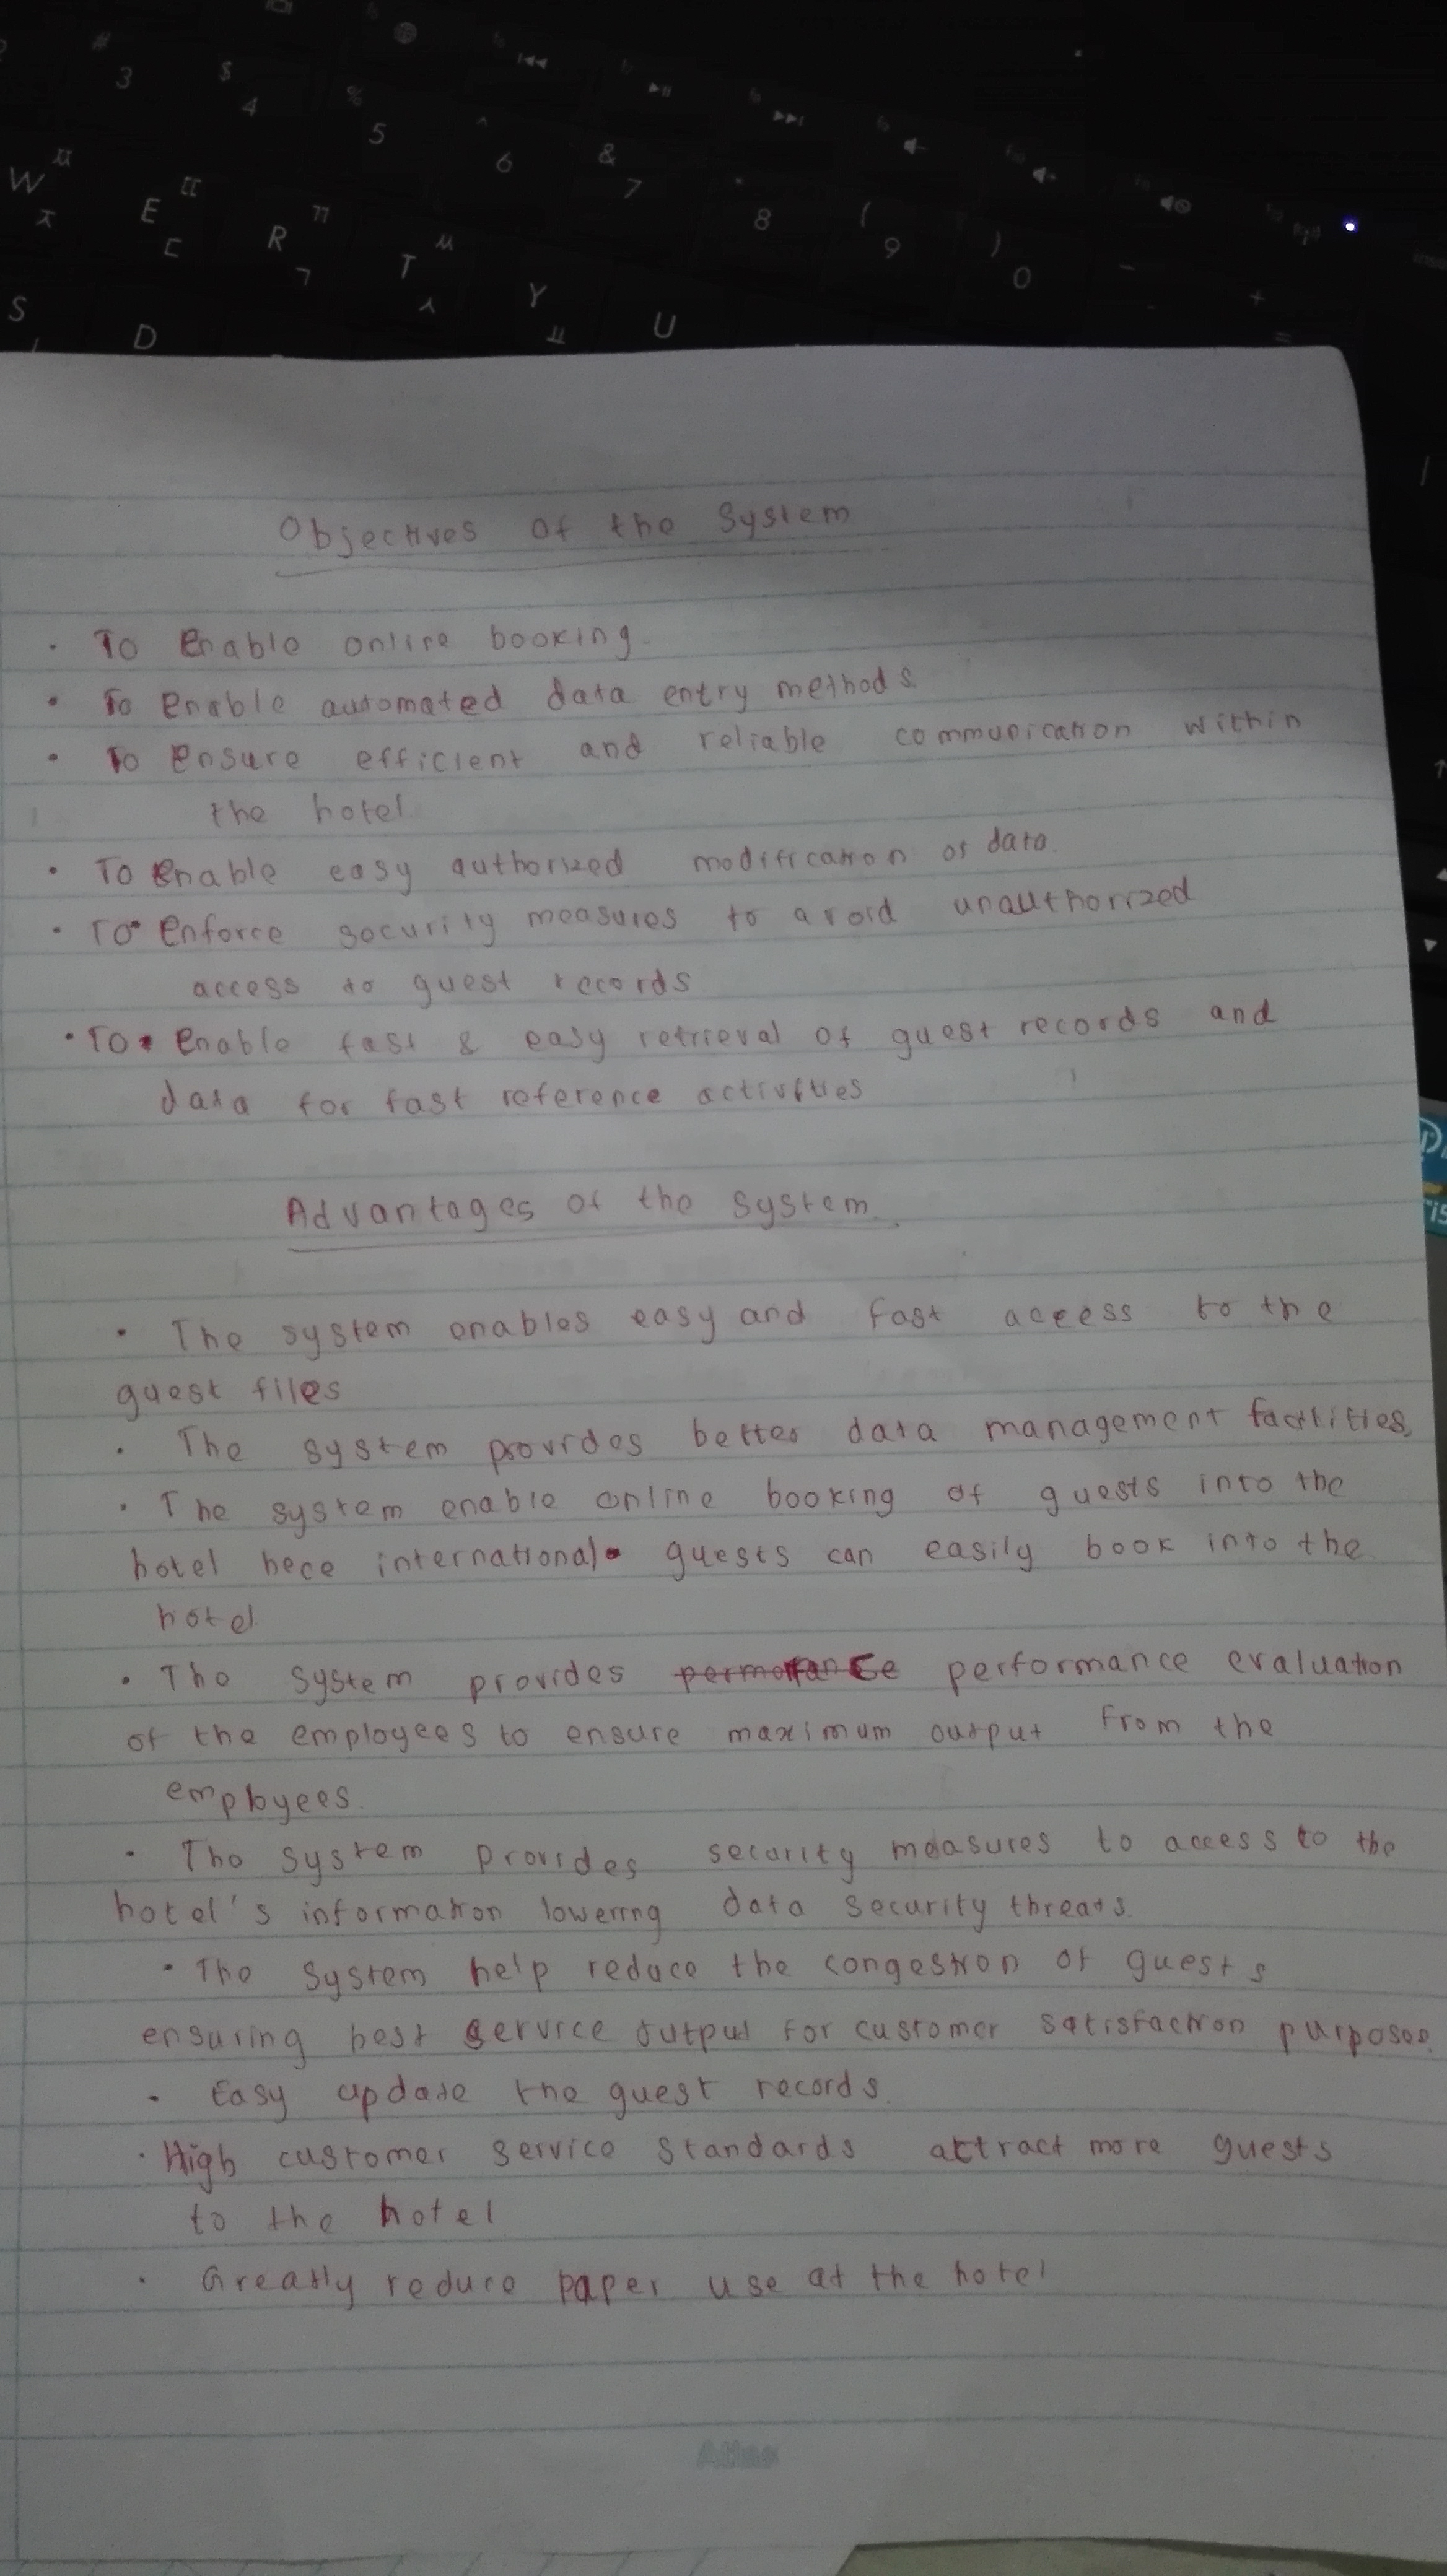 # 3 $ 4 % 5 ^ 6 & 7 * 8 ( 9 ) 0 - + =
W E R T Y U
S D
Objectives of the System
• To Enable online booking.
• To Enable automated data entry methods
• To Ensure efficient and reliable communication within
the hotel
• To Enable easy authorized modification of data.
• To Enforce security measures to avoid unauthorized
access to guest records
• To Enable fast & easy retrieval of guest records and
data for fast reference activities
Advantages of the system
• The system enables easy and fast access to the
guest files
• The system provides better data management facilities,
• The system enable online booking of guests into the
hotel hece international guests can easily book into the
hotel
• The system provides performance evaluation
of the employees to ensure maximum output from the
employees.
• The system provides security measures to access to the
hotel's information lowering data security threats.
• The system help reduce the congestion of guests
ensuring best service output for customer satisfaction purposes.
• Easy update the guest records.
• High customer service standards attract more guests
to the hotel
• Greatly reduce paper use at the hotel
Atlas